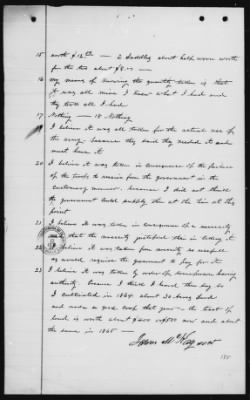 15 worth $12 00/ — 2 Saddles about half worn worth
for the two about $8.00 —
16 my means of knowing the quantity taken is that
it was all mine I knew what I had and
they took all I had
17 Nothing — 18 Nothing
I believe it was all taken for the actual use of
the army because they said they needed it and
must have it
20 I believe it was taken in consequence of the failure
of the troops to receive from the government in the
customary manner. because I did not think
the government could supply them at the time at this
point
21 I believe it was taken in consequence of a necessity
and that the necessity justified them in taking it
22 I believe it was taken from necessity so
as would require the government to pay for it
23 I believe it was taken by order of
authority because I think I heard them say so
I cultivated in 1864 about 30 acres land
and made a good crop that year — the tract of
land is worth about now and about
the same in 1865 —